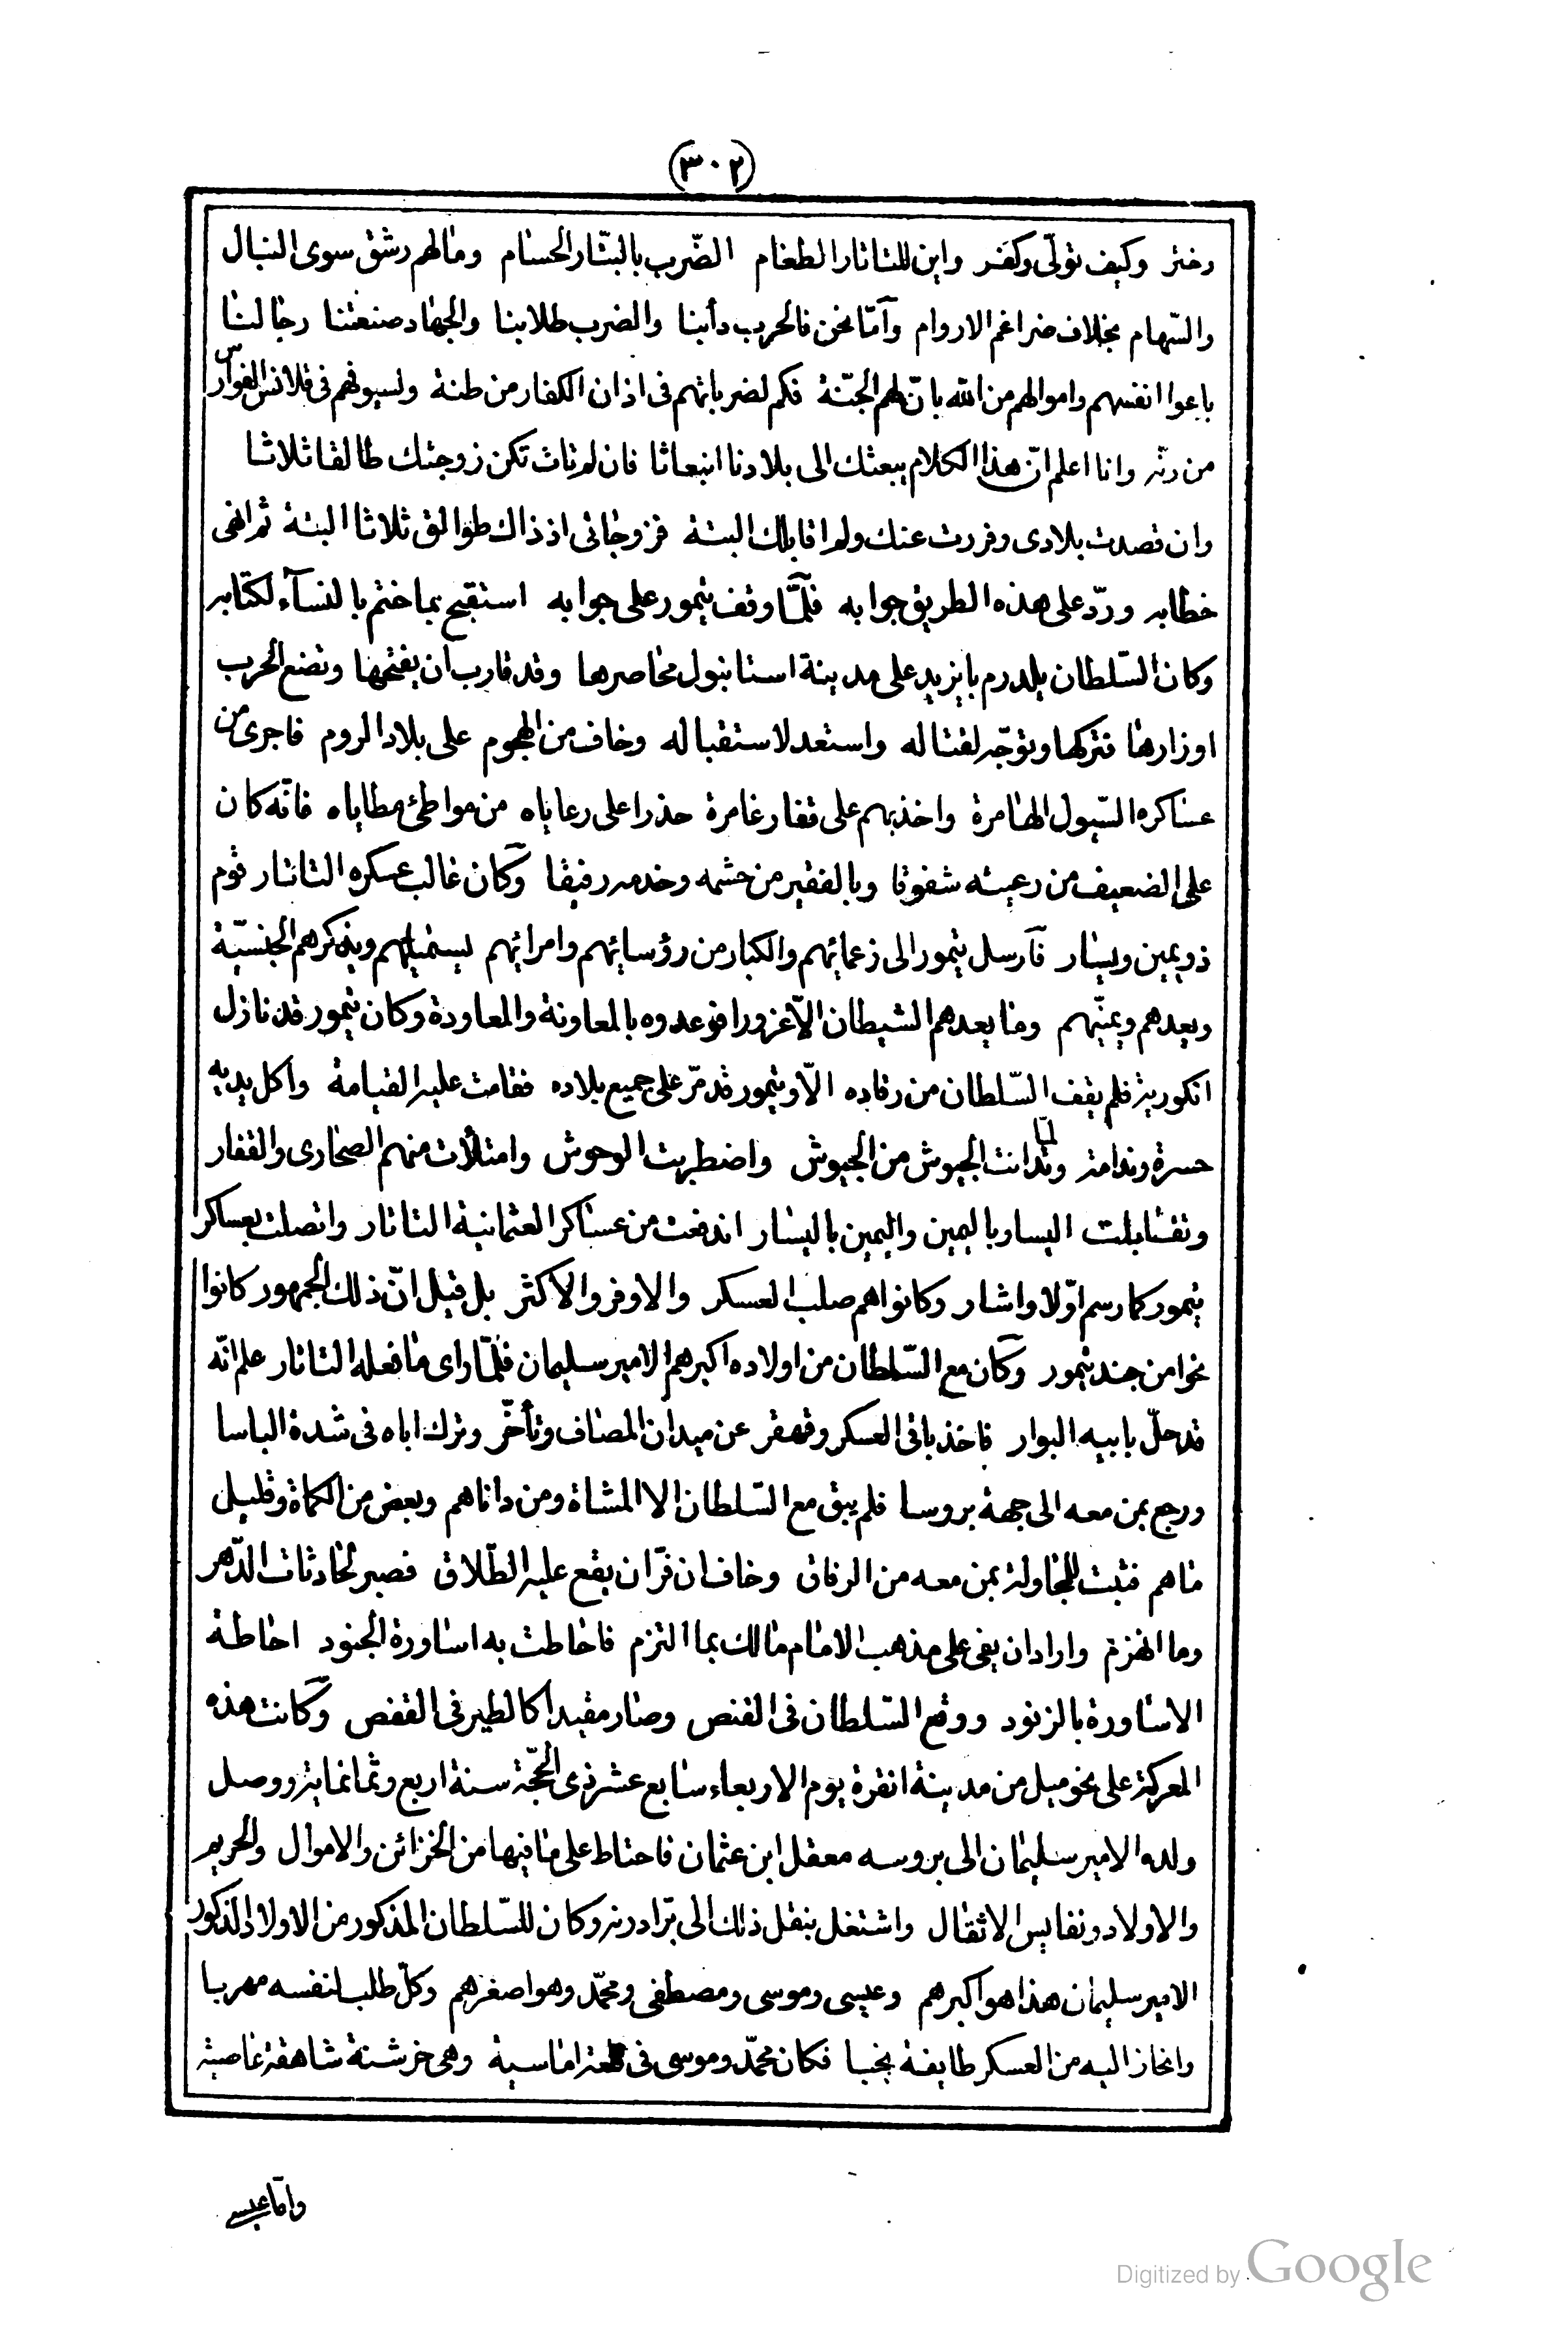 (٣٠٢)
وختر وكيف تولّى وكفر واين للتاتار الطغام الضّرب بالبتّار الحسام ومالهم رشق سوى النبال
والسّهام بخلاف ضراغم الاروام وأمّا نحن فالحرب دأبنا والضرب طلابنا والجهاد صنعتنا رجالنا
باعوا انفسهم واموالهم من الله بانّ لهم الجنّة فكم لضرباتهم فى اذان الكفار من طنة ولسيوفهم فى قلانس الفوارس
من رنّه وانا اعلم انّ هذا الكلام يبعثك الى بلادنا انبعاثا فان لم تات تكن زوجتك طالقا ثلاثا
وان قصدت بلادى وفررت عنك ولم اقابلك البتة فزوجاتى اذ ذاك طوالق ثلاثا البتة ثم انهى
خطابه وردّ على هذه الطريق جوابه فلمّا وقف تيمور على جوابه استقبح بما ختم بالنسآء لكتابه
وكان السّلطان يلدرم بايزيد على مدينة استانبول محاصرها وقد قارب ان يفتحها وتضع الحرب
اوزارها فتركها وتوجّه لقتاله واستعد لاستقباله وخاف من الهجوم على بلاد الروم فاجرى من
عساكره السّيول الهامرة واخذ بهم على قفار غامرة حذرا على رعاياه من مواطئ مطاياه فانّه كان
على الضعيف من رعيته شفوقا وبالفقير من حشمه وخدمه رفيقا وكان غالب عسكره التاتار قوم
ذو يمين ويسار فأرسل تيمور الى زعمائهم والكبار من رؤسائهم وامرائهم يستميلهم ويذكرهم الجنسيّة
ويعدهم ويمنّيهم وما يعدهم الشيطان الاّ غرورا فوعدوه بالمعاونة والمعاودة وكان تيمور قد نازل
انكوريه فلم يقف السّلطان من رقاده الاّ وتيمور قد مرّ على جميع بلاده فقامت عليه القيامة واكل يديه
حسرة وندامة ولمّا تدانت الجيوش من الجيوش واضطربت الوحوش وامتلأت منهم الصحارى والقفار
وتقابلت اليسار باليمين واليمين باليسار اندفعت من عساكر العثمانية التاتار واتصلت بعساكر
تيمور كما رسم اوّلا واشار وكانوا هم صلب العسكر والاوفر والاكثر بل قيل انّ ذلك الجمهور كانوا
نحوا من جند تيمور وكان مع السّلطان من اولاده اكبرهم الامير سليمان فلمّا راى ما فعله التاتار علم انّه
قد حلّ بابيه البوار فاخذ باقى العسكر وقهقر عن ميدان المصاف وتأخّر وترك اباه فى شدة الباسا
ورجع بمن معه الى جهة بروسا فلم يبق مع السّلطان الا المشاة ومن داناهم وبعض من الكماة وقليل
ماهم فثبت للمجاولة بمن معه من الرفاق وخاف ان فرّ ان يقع عليه الطّلاق فصبر لحادثات الدّهر
وما انهزم واراد ان يفى على مذهب الامام مالك بما التزم فاحاطت به اساورة الجنود احاطة
الاساورة بالزنود ووقع السّلطان فى القنص وصار مقيدا كالطير فى القفص وكانت هذه
المعركة على نحو ميل من مدينة انقرة يوم الاربعاء سابع عشر ذى الحجّة سنة اربع وثمانمايه ووصل
ولده الامير سليمان الى بروسه معقل ابن عثمان فاحتاط على ما فيها من الخزائن والاموال والحريم
والاولاد ونفايس الاثقال واشتغل بنقل ذلك الى برّ ادرنه وكان للسّلطان المذكور من الاولاد الذكور
الامير سليمان هذا هو اكبرهم وعيسى وموسى ومصطفى ومحمّد وهو اصغرهم وكلّ طلب لنفسه مهربا
وانحاز اليه من العسكر طايفة نجبا فكان محمّد وموسى فى قلعة اماسية وهى خرشنة شاهقة عاصية
وامّا عيسى
Digitized by Google